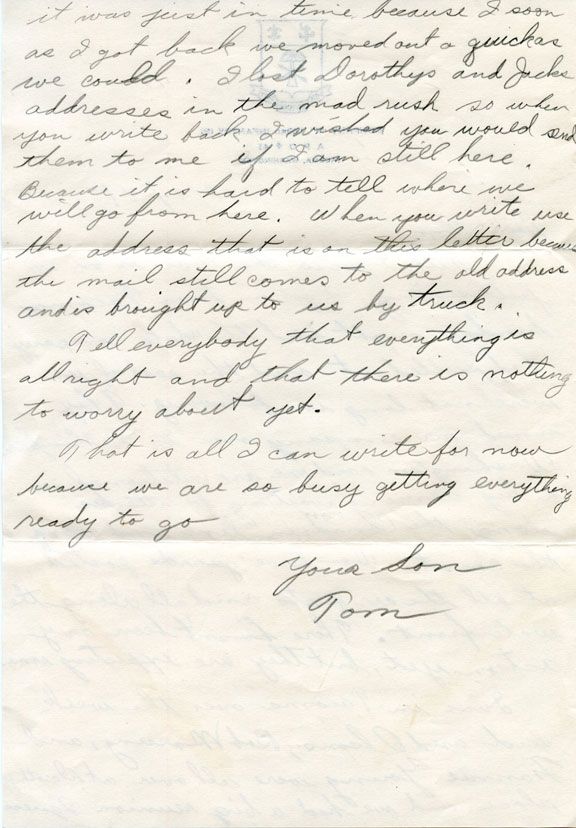 it was just in time because I soon
as I got back we moved out a quick as
we could. I lost Dorothys and Jacks
addresses in the mad rush so when
you write back I wished you would send
them to me if I am still here.
Because it is hard to tell where we
will go from here. When you write use
the address that is on this letter because
the mail still comes to the old address
and is brought up to us by truck.
Tell everybody that everything is
allright and that there is nothing
to worry about yet.
That is all I can write for now
because we are so busy getting everything
ready to go
Your Son
Tom